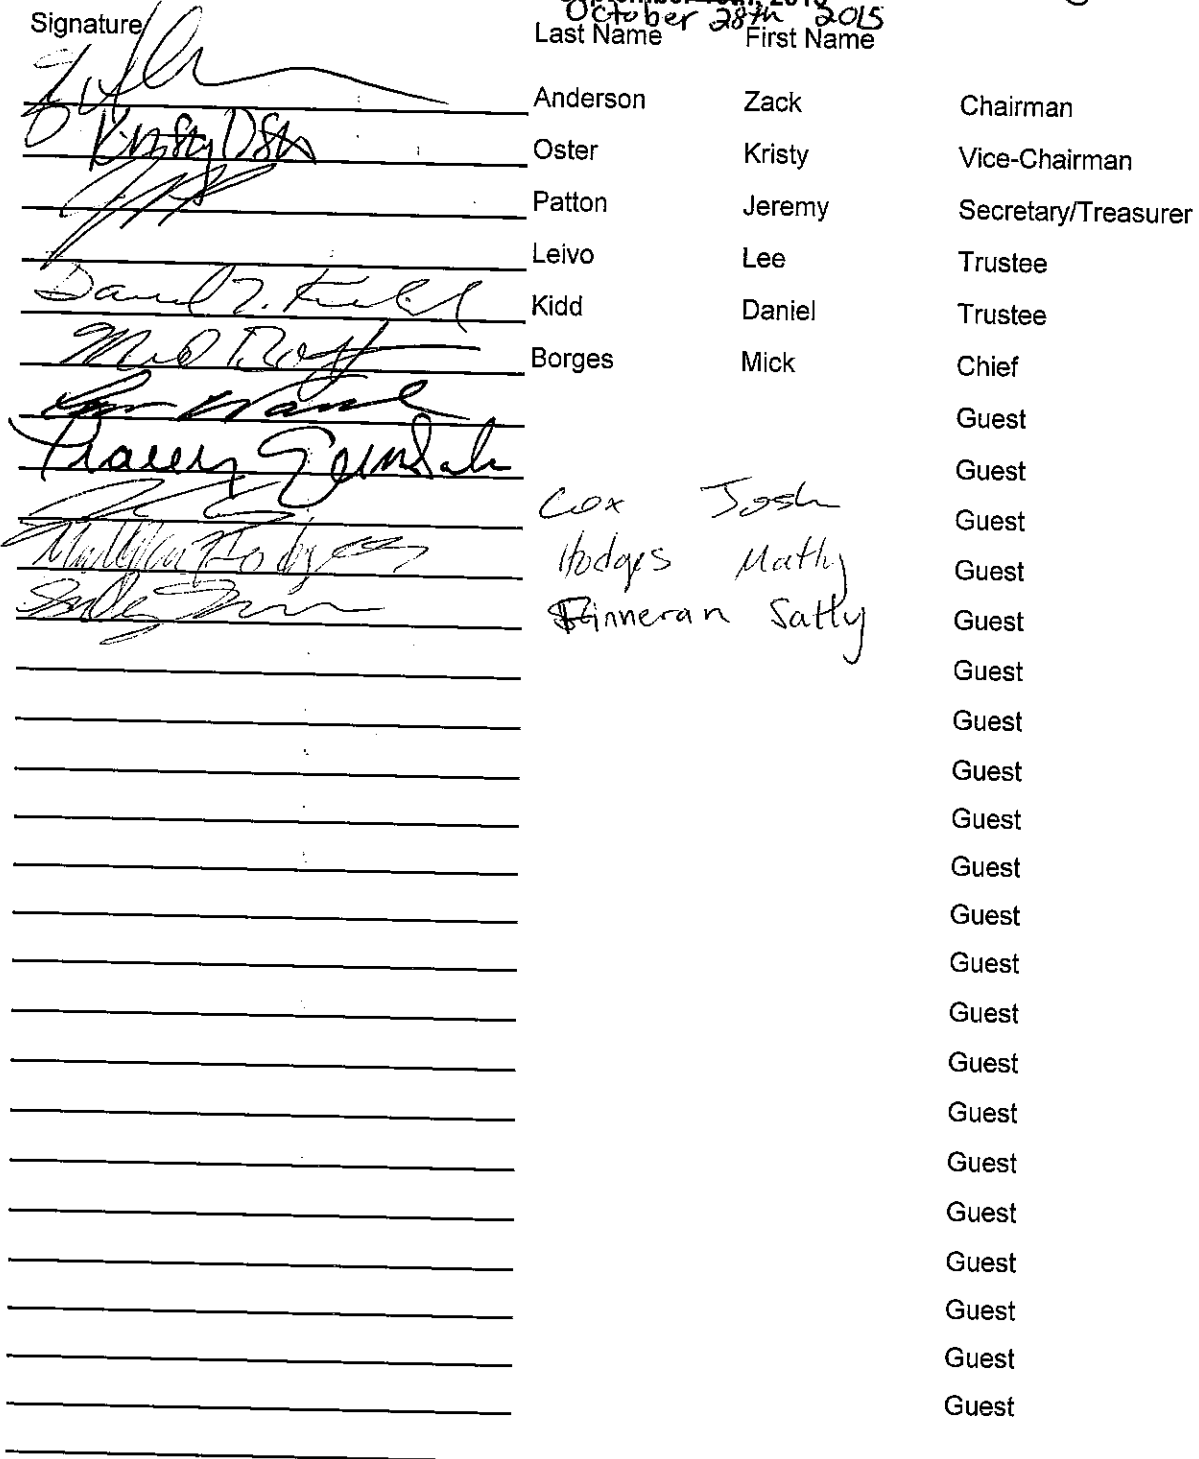 October 28th 2015
Signature Last Name First Name
Anderson Zack Chairman
Kristy Oster Oster Kristy Vice-Chairman
Patton Jeremy Secretary/Treasurer
Leivo Lee Trustee
Kidd Daniel Trustee
Borges Mick Chief
Guest
Guest
Cox Josh Guest
Hodges Mathy Guest
Finneran Sally Guest
Guest
Guest
Guest
Guest
Guest
Guest
Guest
Guest
Guest
Guest
Guest
Guest
Guest
Guest
Guest
Guest